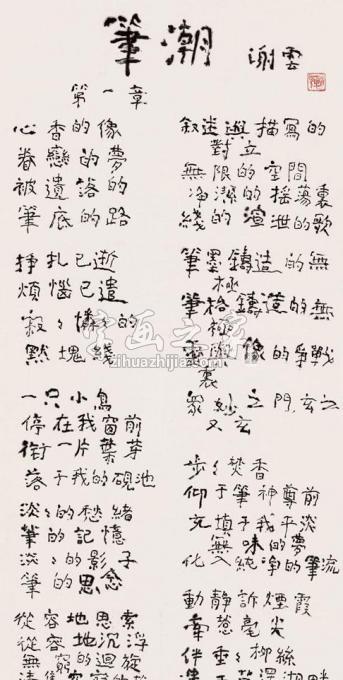 筆潮
謝雲
第一章
心香的像
眷戀的夢
被遺落的
筆底的路
掙扎已逝
煩惱已遣
寂々憐々的
默塊綫
一只小鳥
停在我窗前
銜一片葉芽
落于我的硯池
淡々的愁緒
筆的記憶
淡々的影子
筆的思念
從容地思索
從容地沉浮
無窮的迴旋
叙述與描寫的
對立
無限的空間
净潔的摇蕩裏
綫的渲泄的歌
筆墨鑄造的無
極
筆格鑄造的無
極
靈與像的爭戰
裏
衆妙之門玄之
又玄
步々焚香
仰于筆神尊前
充填于我平淡
無味的夢
化入純净的筆流
動静訴煙霞
牽惹毫尖
伴垂々柳絲
字画之家
zihuazhijia.com